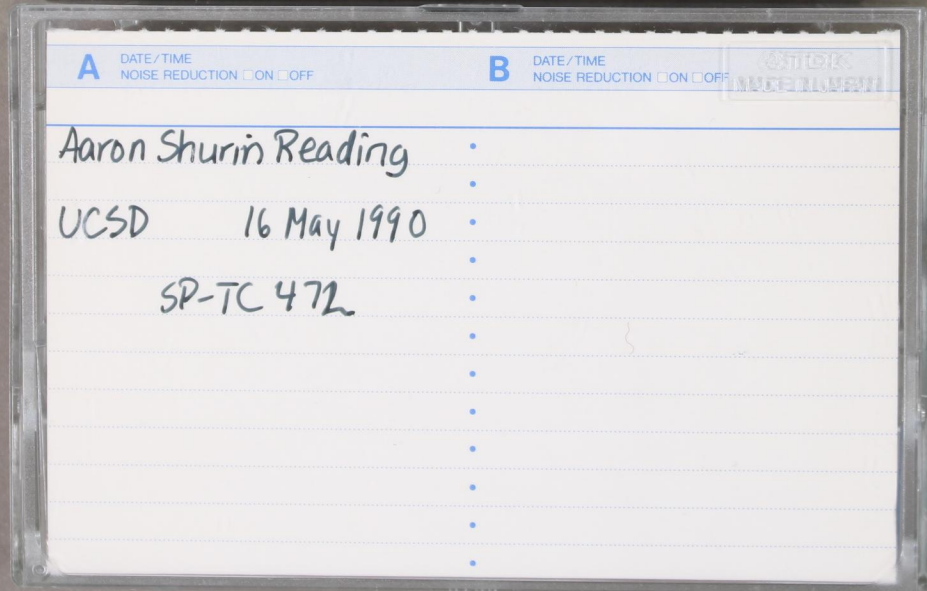 A DATE/TIME
NOISE REDUCTION □ON □OFF
B DATE/TIME
NOISE REDUCTION □ON □OFF
TDK
MADE IN JAPAN
Aaron Shurin Reading
UCSD 16 May 1990
SP-TC 472